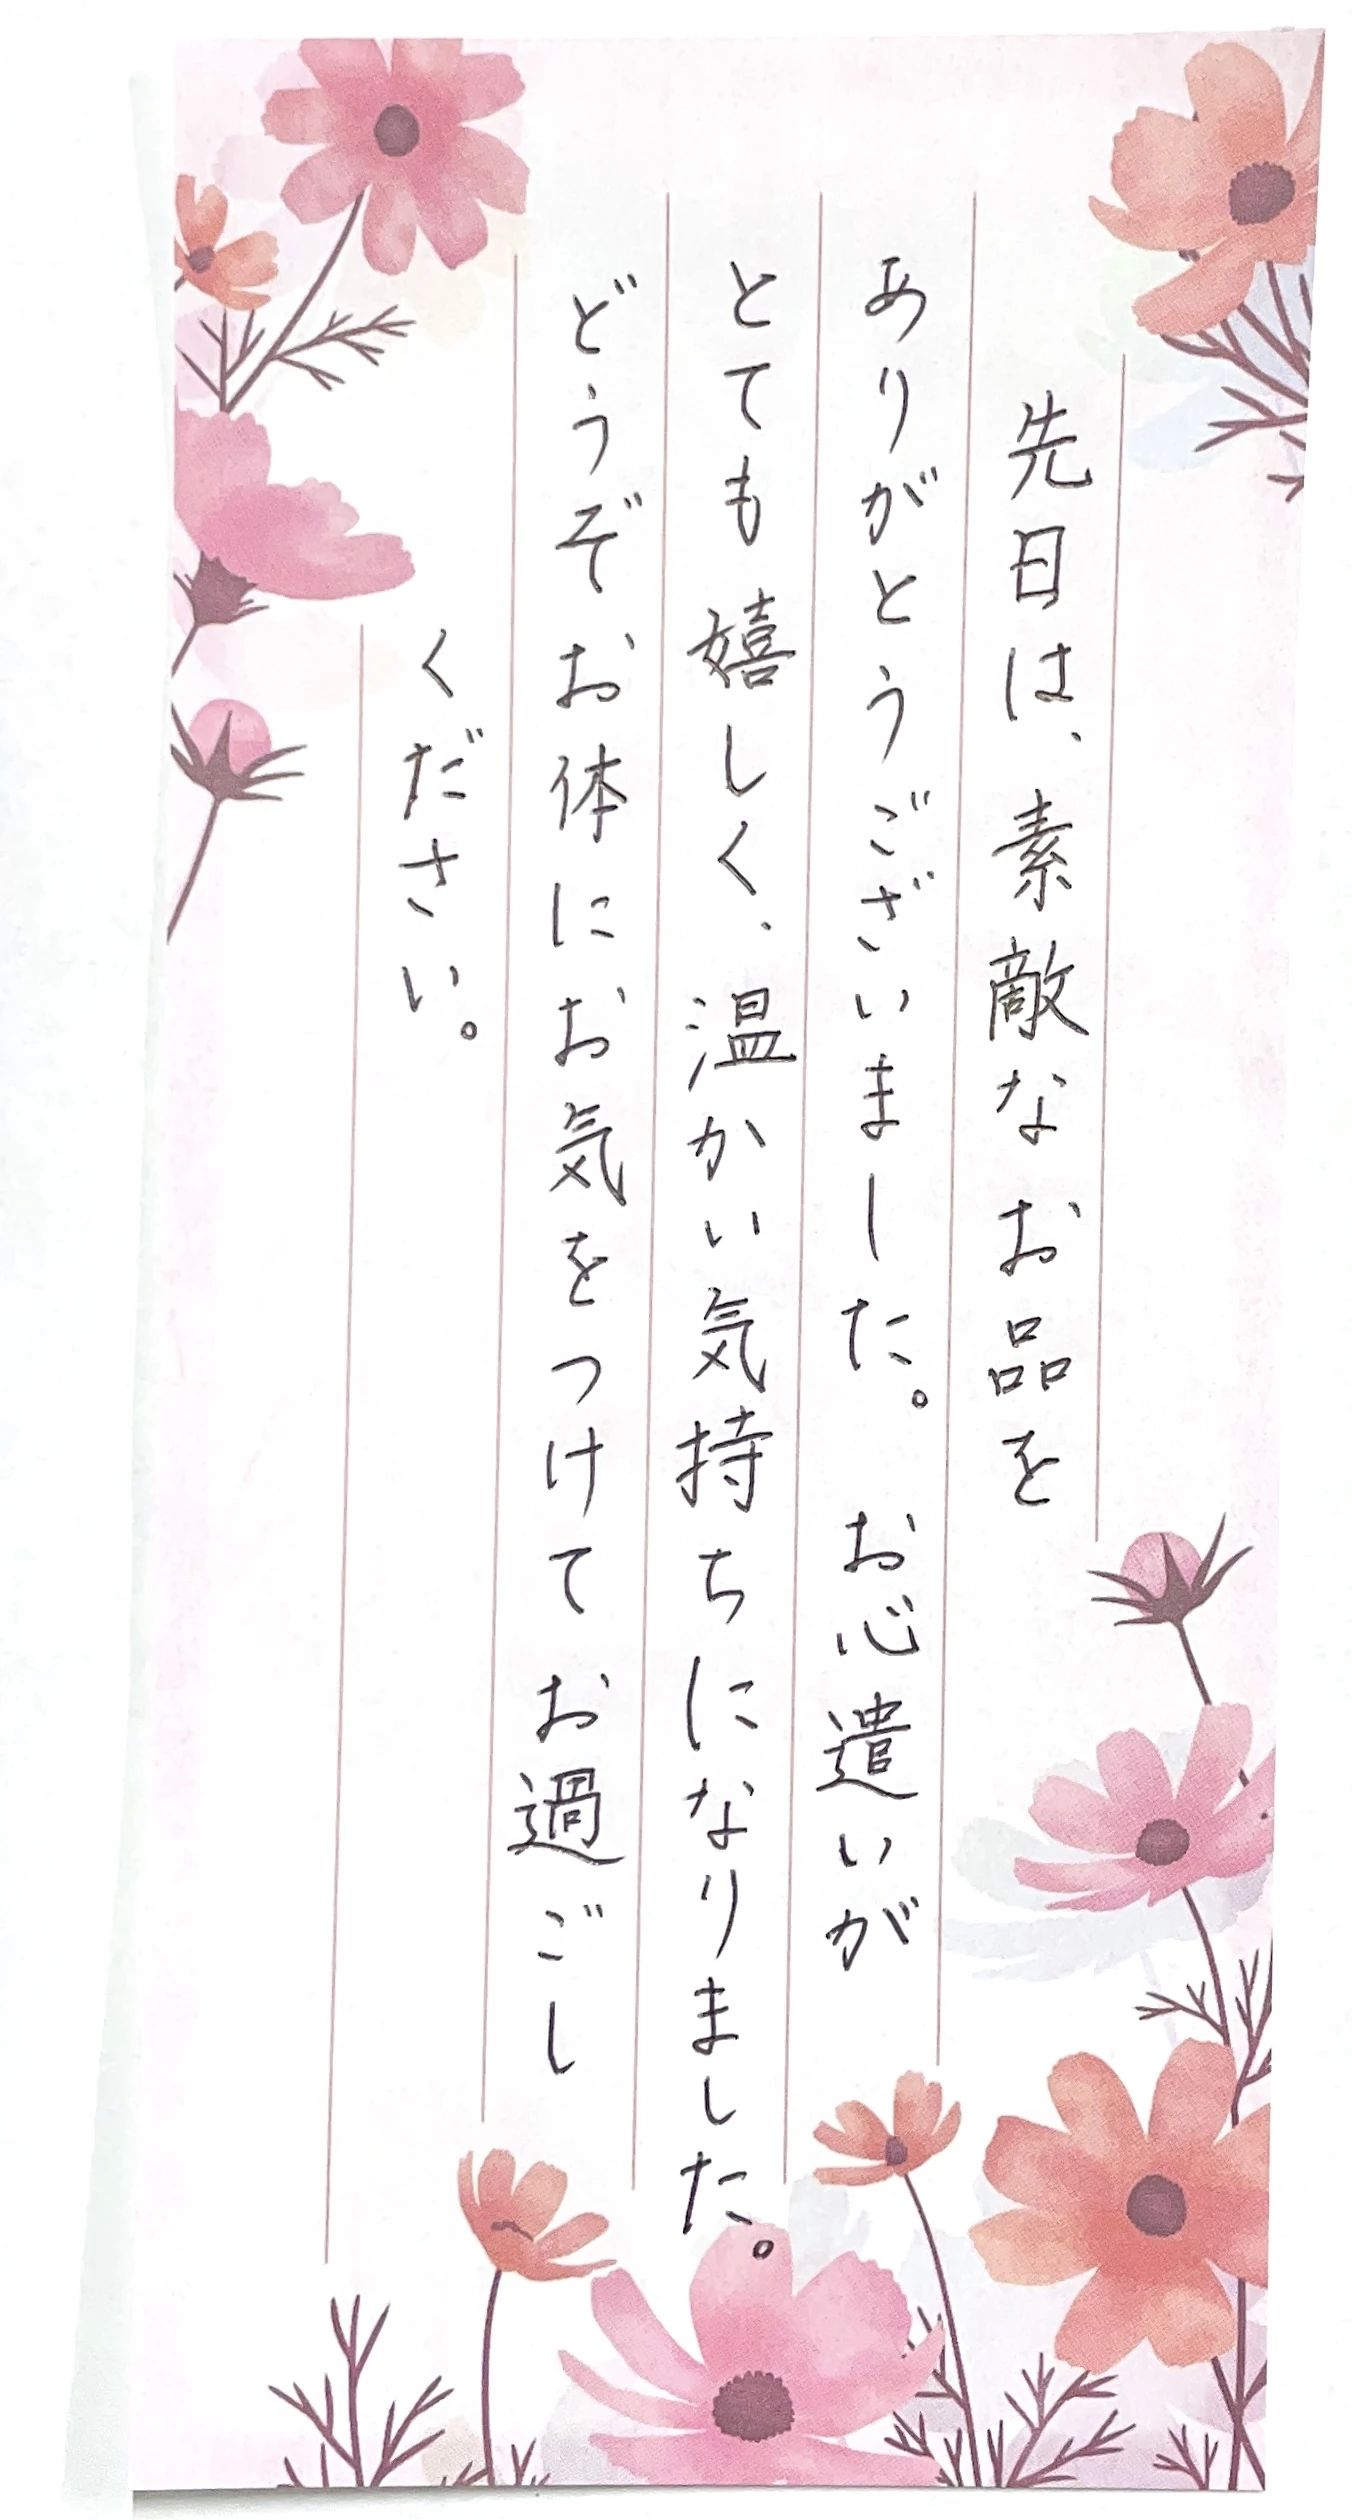 先日は、素敵なお品を
ありがとうございました。お心遣いが
とても嬉しく、温かい気持ちになりました。
どうぞお体にお気をつけてお過ごし
ください。